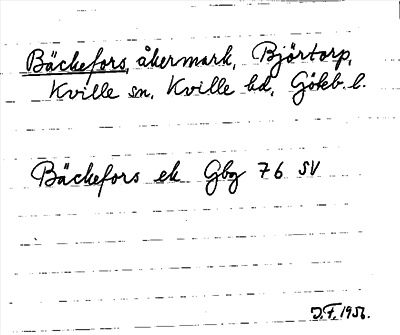 Bäckefors, åkermark, Björtorp,
Kville sn, Kville hd, Gökb. l.
Bäckefors ek Gbg 76 SV
D.F. 1956.